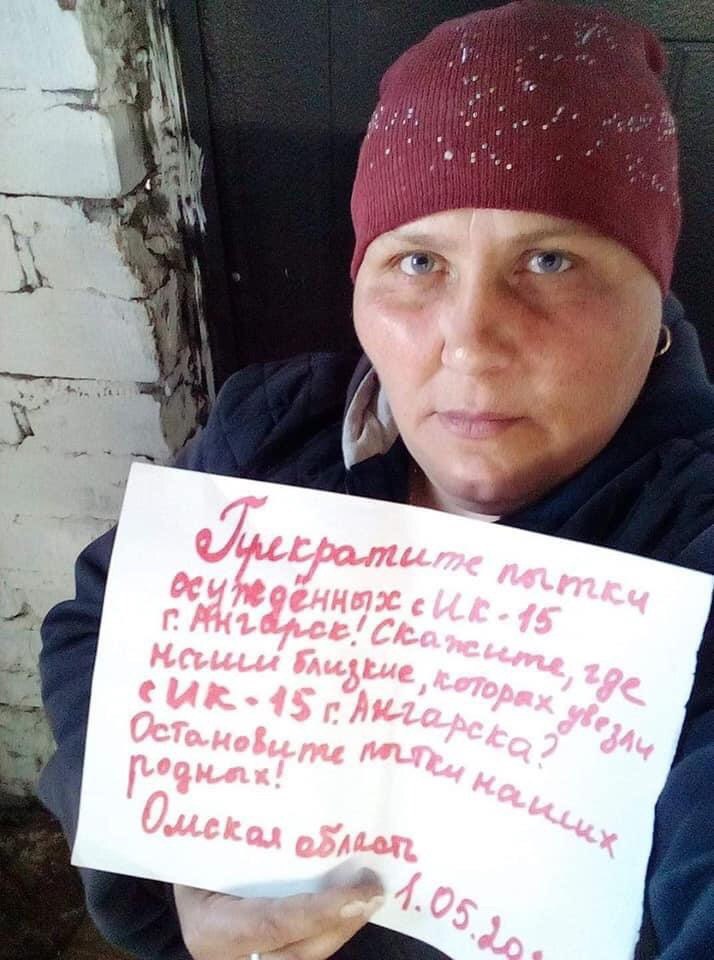 Прекратите пытки
осуждённых с ИК-15
г. Ангарск! Скажите, где
наши близкие, которах увезли
с ИК-15 г. Ангарска?
Остановите пытки наших
родных!
Омская область
1.05.20